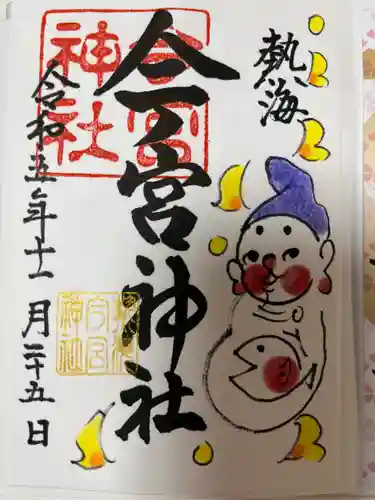 熱海
今宮神社
今宮神社
令和五年十一月二十五日